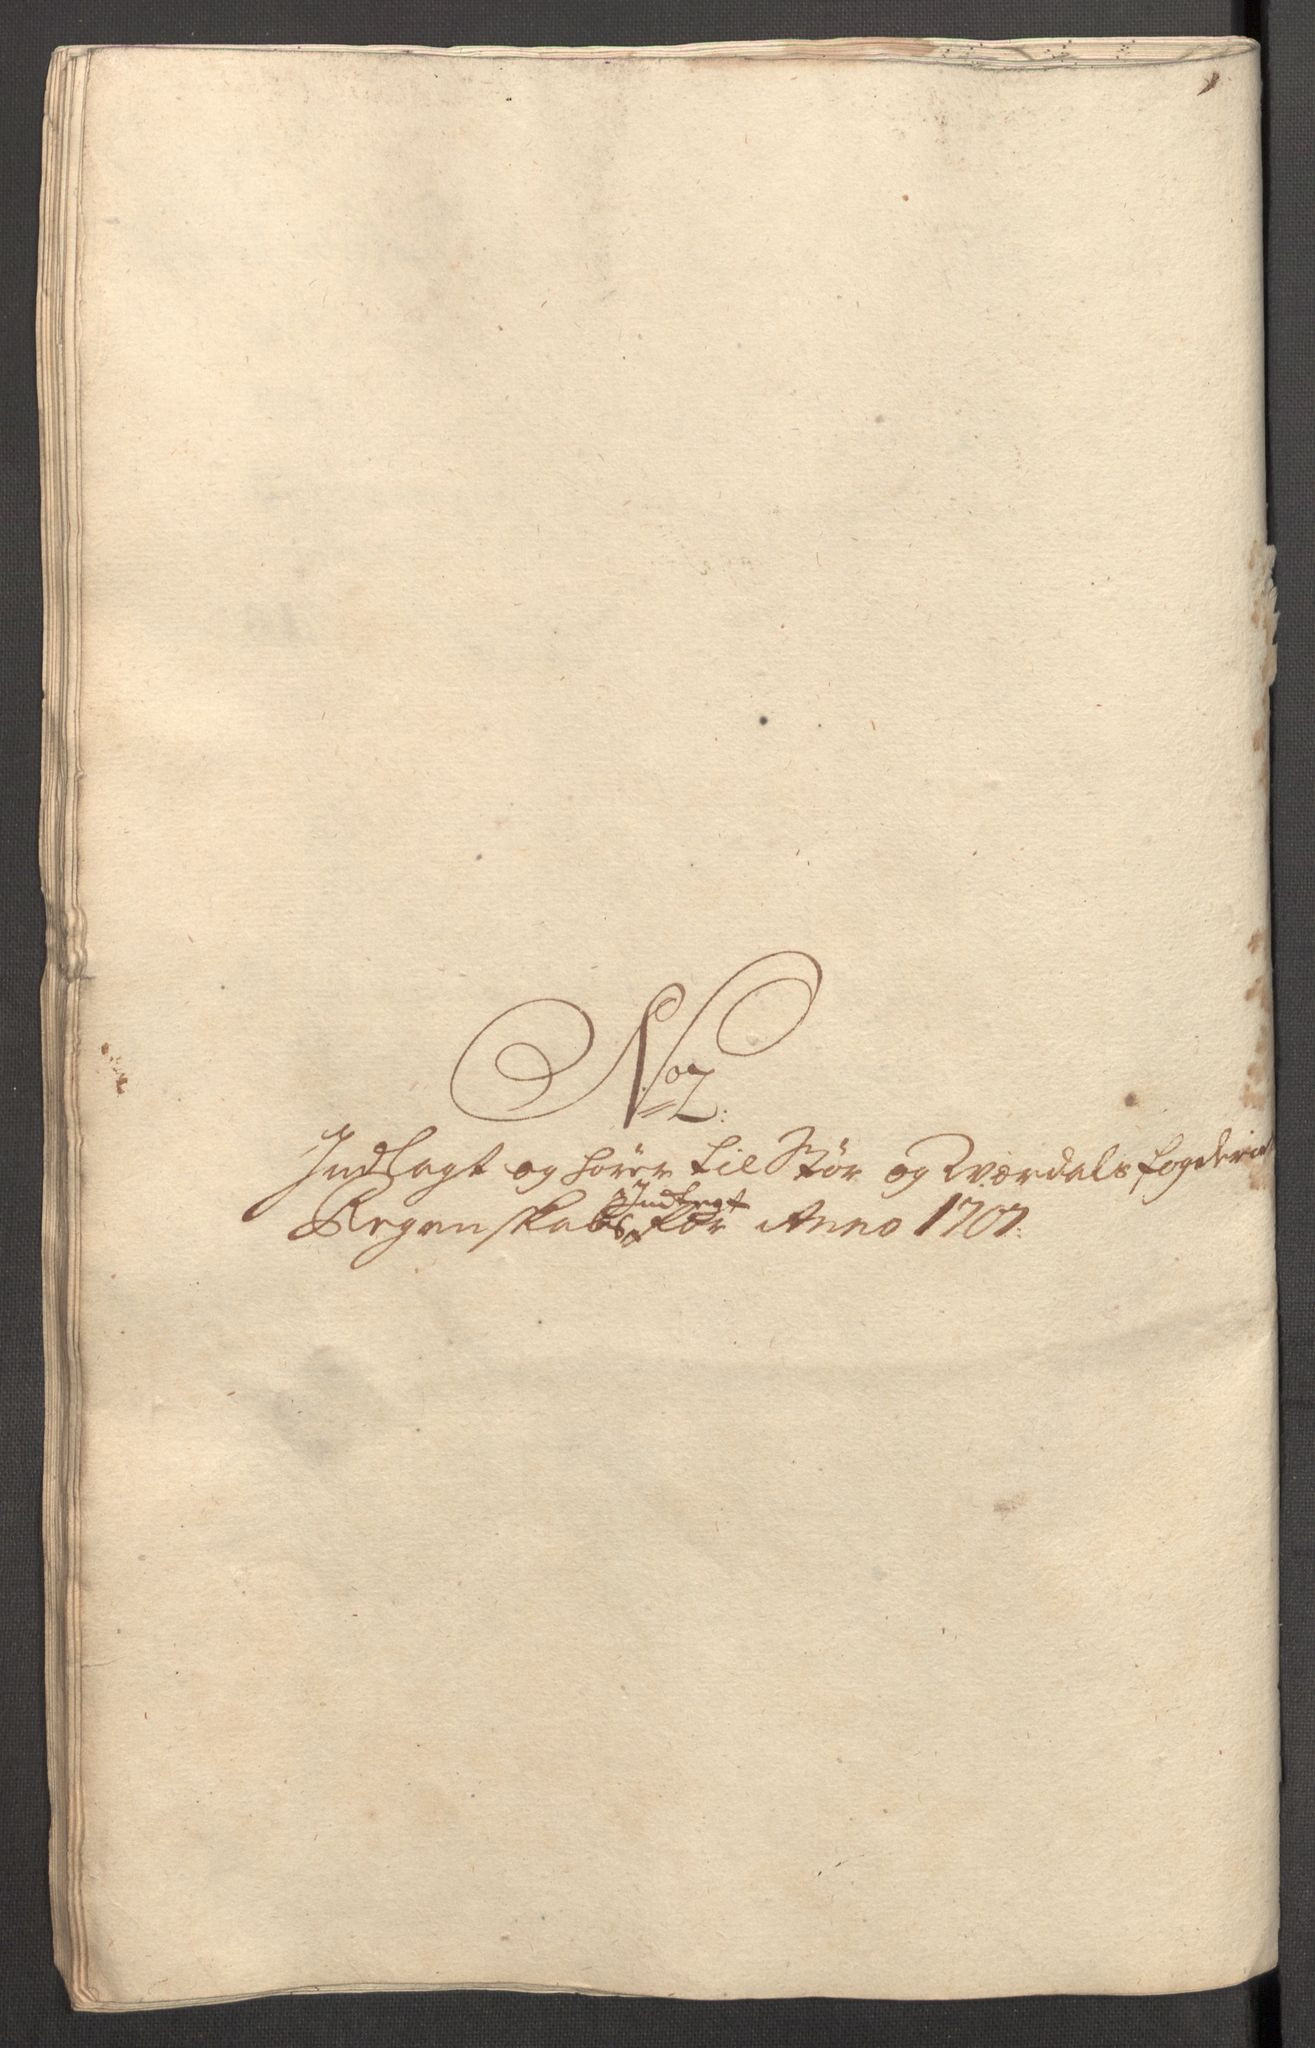 No 2:
Indlagt og hører til Stør og Værdals fogderies
Regenskabs Indtegt for Anno 1707: